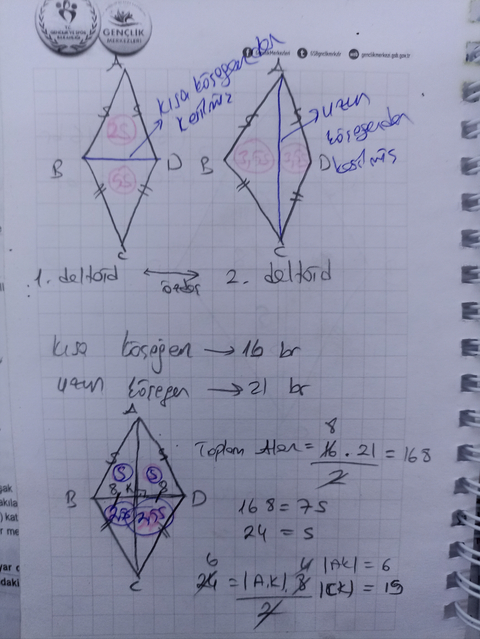 GENÇLİK
MERKEZLERİ
genclikmerkezi.gsb.gov.tr
A
kısa köşegenden
kesilmiş
2S
B
D
5S
C
A
uzun
köşegenden
kesilmiş
B
3,5S
3,5S
D
C
1. deltoid ⟷ 2. deltoid
özdeş
kısa köşegen → 16 br
uzun köşegen → 21 br
A
S S
8 K 8
B D
2,5S 2,5S
C
Toplam Alan = 16 . 21 / 2 = 168
8
168 = 7S
24 = S
24 = |AK| . 8 / 2
6 4
|AK| = 6
|CK| = 15